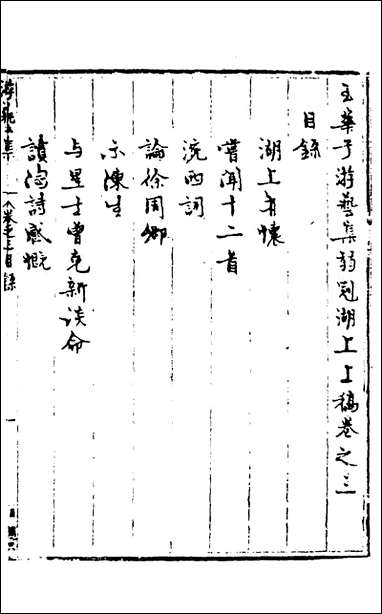 玉華子游藝集弱冠湖上上稿卷之三
目錄
湖上有懷
嘗聞十二首
浣西詞
論徐周卿
示陳生
与星士曹克新談命
讀陶詩感慨
游藝集 卷之三目錄 一